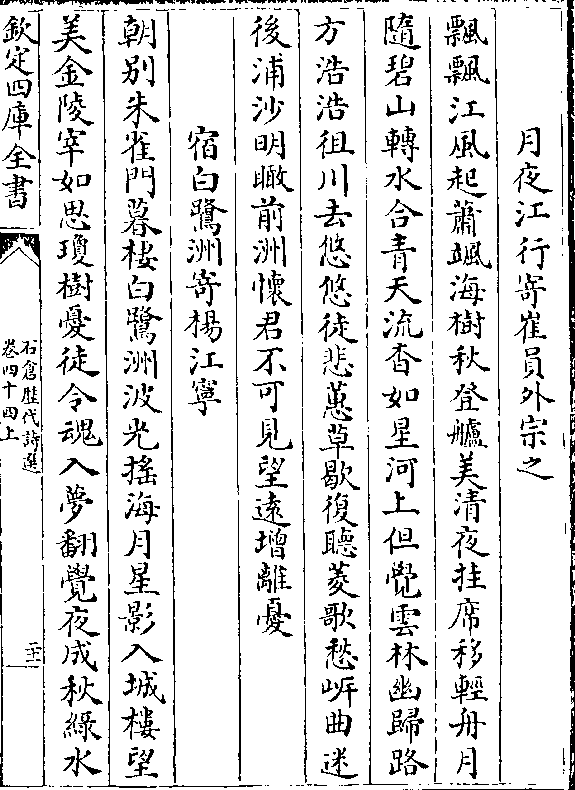 月夜江行寄崔員外宗之
飄飄江風起蕭颯海樹秋登艫美清夜挂席移輕舟月
隨碧山轉水合青天流杳如星河上但覺雲林幽歸路
方浩浩徂川去悠悠徒悲蕙草歇復聽菱歌愁岸曲迷
後浦沙明瞰前洲懷君不可見望遠增離憂
宿白鷺洲寄楊江寧
朝别朱雀門暮棲白鷺洲波光搖海月星影入城樓望
美金陵宰如思瓊樹憂徒令魂入夢翻覺夜成秋綠水
欽定四庫全書
石倉歷代詩選
卷四十四上